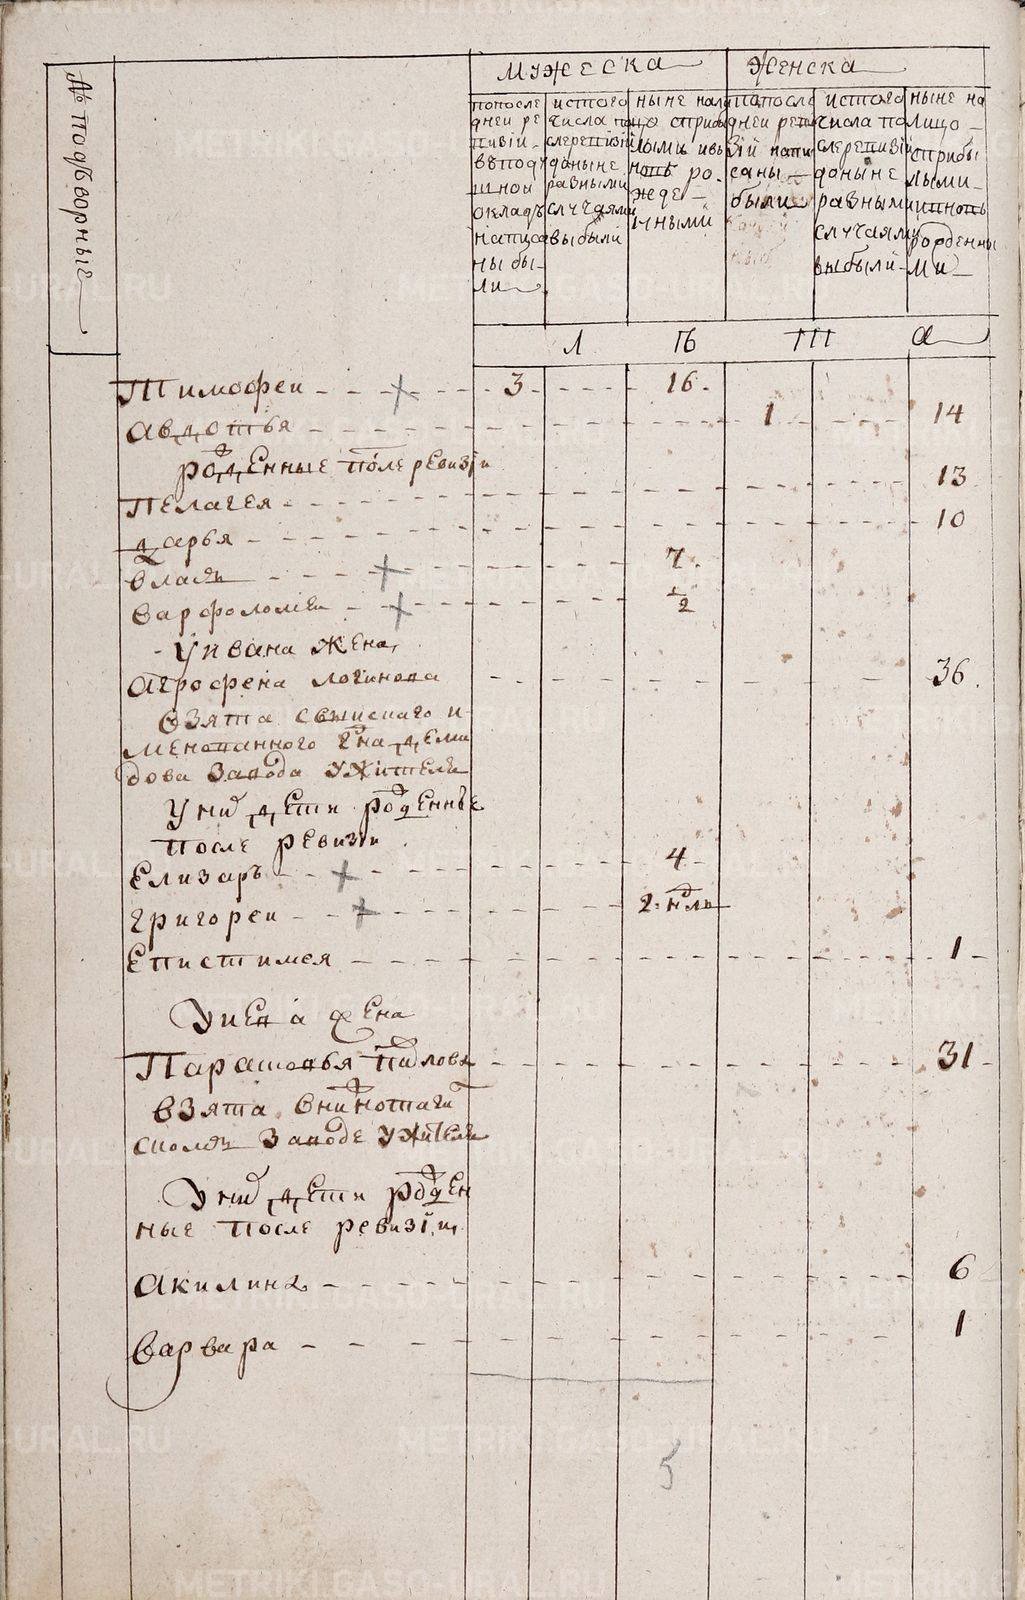 № подворные
мужеска
женска
попосле
дней ре
визiи
вподу
шной
окладъ
написа
ны бы
ли
истого
числа по
слеревизiи
доныне
разными
случаями
выбыли
ныне нали
цо сприбы
лыми ивь
новь ро
жде
нными
попосле
дней реви
зiи напи
саны
были
истого
числа по
слеревизiи
доныне
разными
случаями
выбыли
ныне на
лицо
сприбы
лыми
ивновь
рожденны
ми
л ѣ т а
Тимофеи 3 16
Авдотья 1 14
рожденные после ревизiи
Пелагея 13
дарья 10
власъ 7
варфоломеи 1/2
У ивана жена
Агрофена логинова 36
взята свышепиго и
менованного Гна деми
дова завода ужителя
Уних дети рожденные
после ревизiи
Елизаръ 4
григореи 2. ндли
Епистимея 1
жена
Парасковья 31
взята внижнотаги
сполскъ заводе ужителя
Уних дети рожден
ные после ревизiи
Акилина 6
варвара 1
5
METRIKI.GASO-URAL.RU